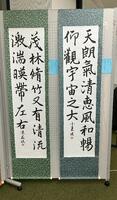 天朗氣清恵風和暢
仰觀宇宙之大
茂林脩竹又有清流
激湍暎帶左右